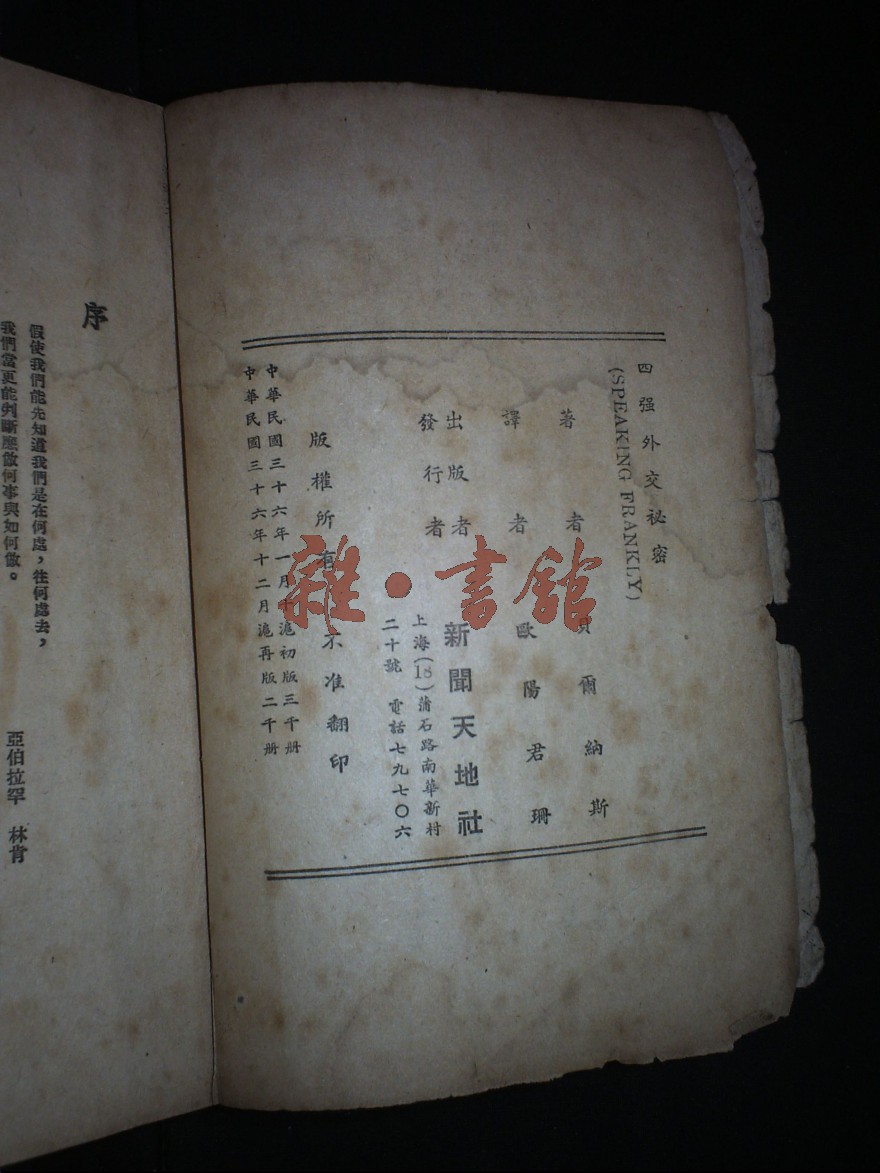 四强外交祕密
(SPEAKING FRANKLY)
著者 貝爾納斯
譯者 歐陽君珊
出版者
發行者
新聞天地社
上海(18)蒲石路南華新村
二十號 電話七九七〇六
版權所有 不准翻印
中華民國三十六年一月十滬初版三千册
中華民國三十六年十二月滬再版二千册
序
假使我們能先知道我們是在何處，往何處去，
我們當更能判斷應做何事與如何做。
亞伯拉罕 林肯
雜·書館